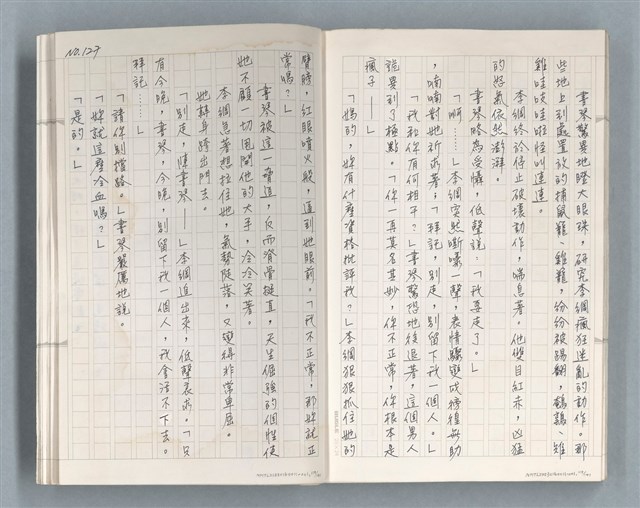 書琴驚異地瞪大眼珠，研究李綱瘋狂迷亂的動作。那
些地上到處置放的捕鼠籠、雞籠，紛紛被踢翻，鵪鶉、雉
雞哇吱哇啦怪叫連連。
李綱終於停止破壞動作，喘息著。他雙目紅赤，凶猛
的怒氣依然澎湃。
書琴略為受懾，低聲說：「我要走了。」
「啊……」李綱突然嘶嚷一聲，表情驟變成徬徨無助
，喃喃對她祈求著：「拜託，別走，別留下我一個人。」
「我和你有何相干？」書琴驚恐地後退著，這個男人
詭異到了極點。「你一再莫名其妙，你不正常，你根本是
瘋子——」
「媽的，妳有什麼資格批評我？」李綱狠狠抓住她的
臂膀，紅眼噴火般，逼到她眼前。「我不正常，那妳就正
常嗎？」
書琴被這一脅迫，反而脊骨挺直，天生倔強的個性使
她不顧一切甩開他的大手，冷冷笑著。
李綱急著想拉住她，氣勢陡落，又變得非常卑屈。
她轉身踏出門去。
「別走，陳書琴——」李綱追出來，低聲哀求。「只
有今晚，書琴，今晚，別留下我一個人，我會活不下去。
拜託……」
「請你別擋路。」書琴嚴厲地說。
「妳就這麼冷血嗎？」
「是的。」
NO.127